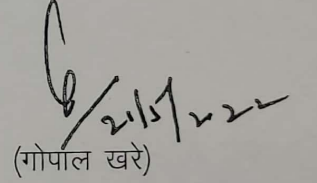 21/5/2022
(गोपाल खरे)